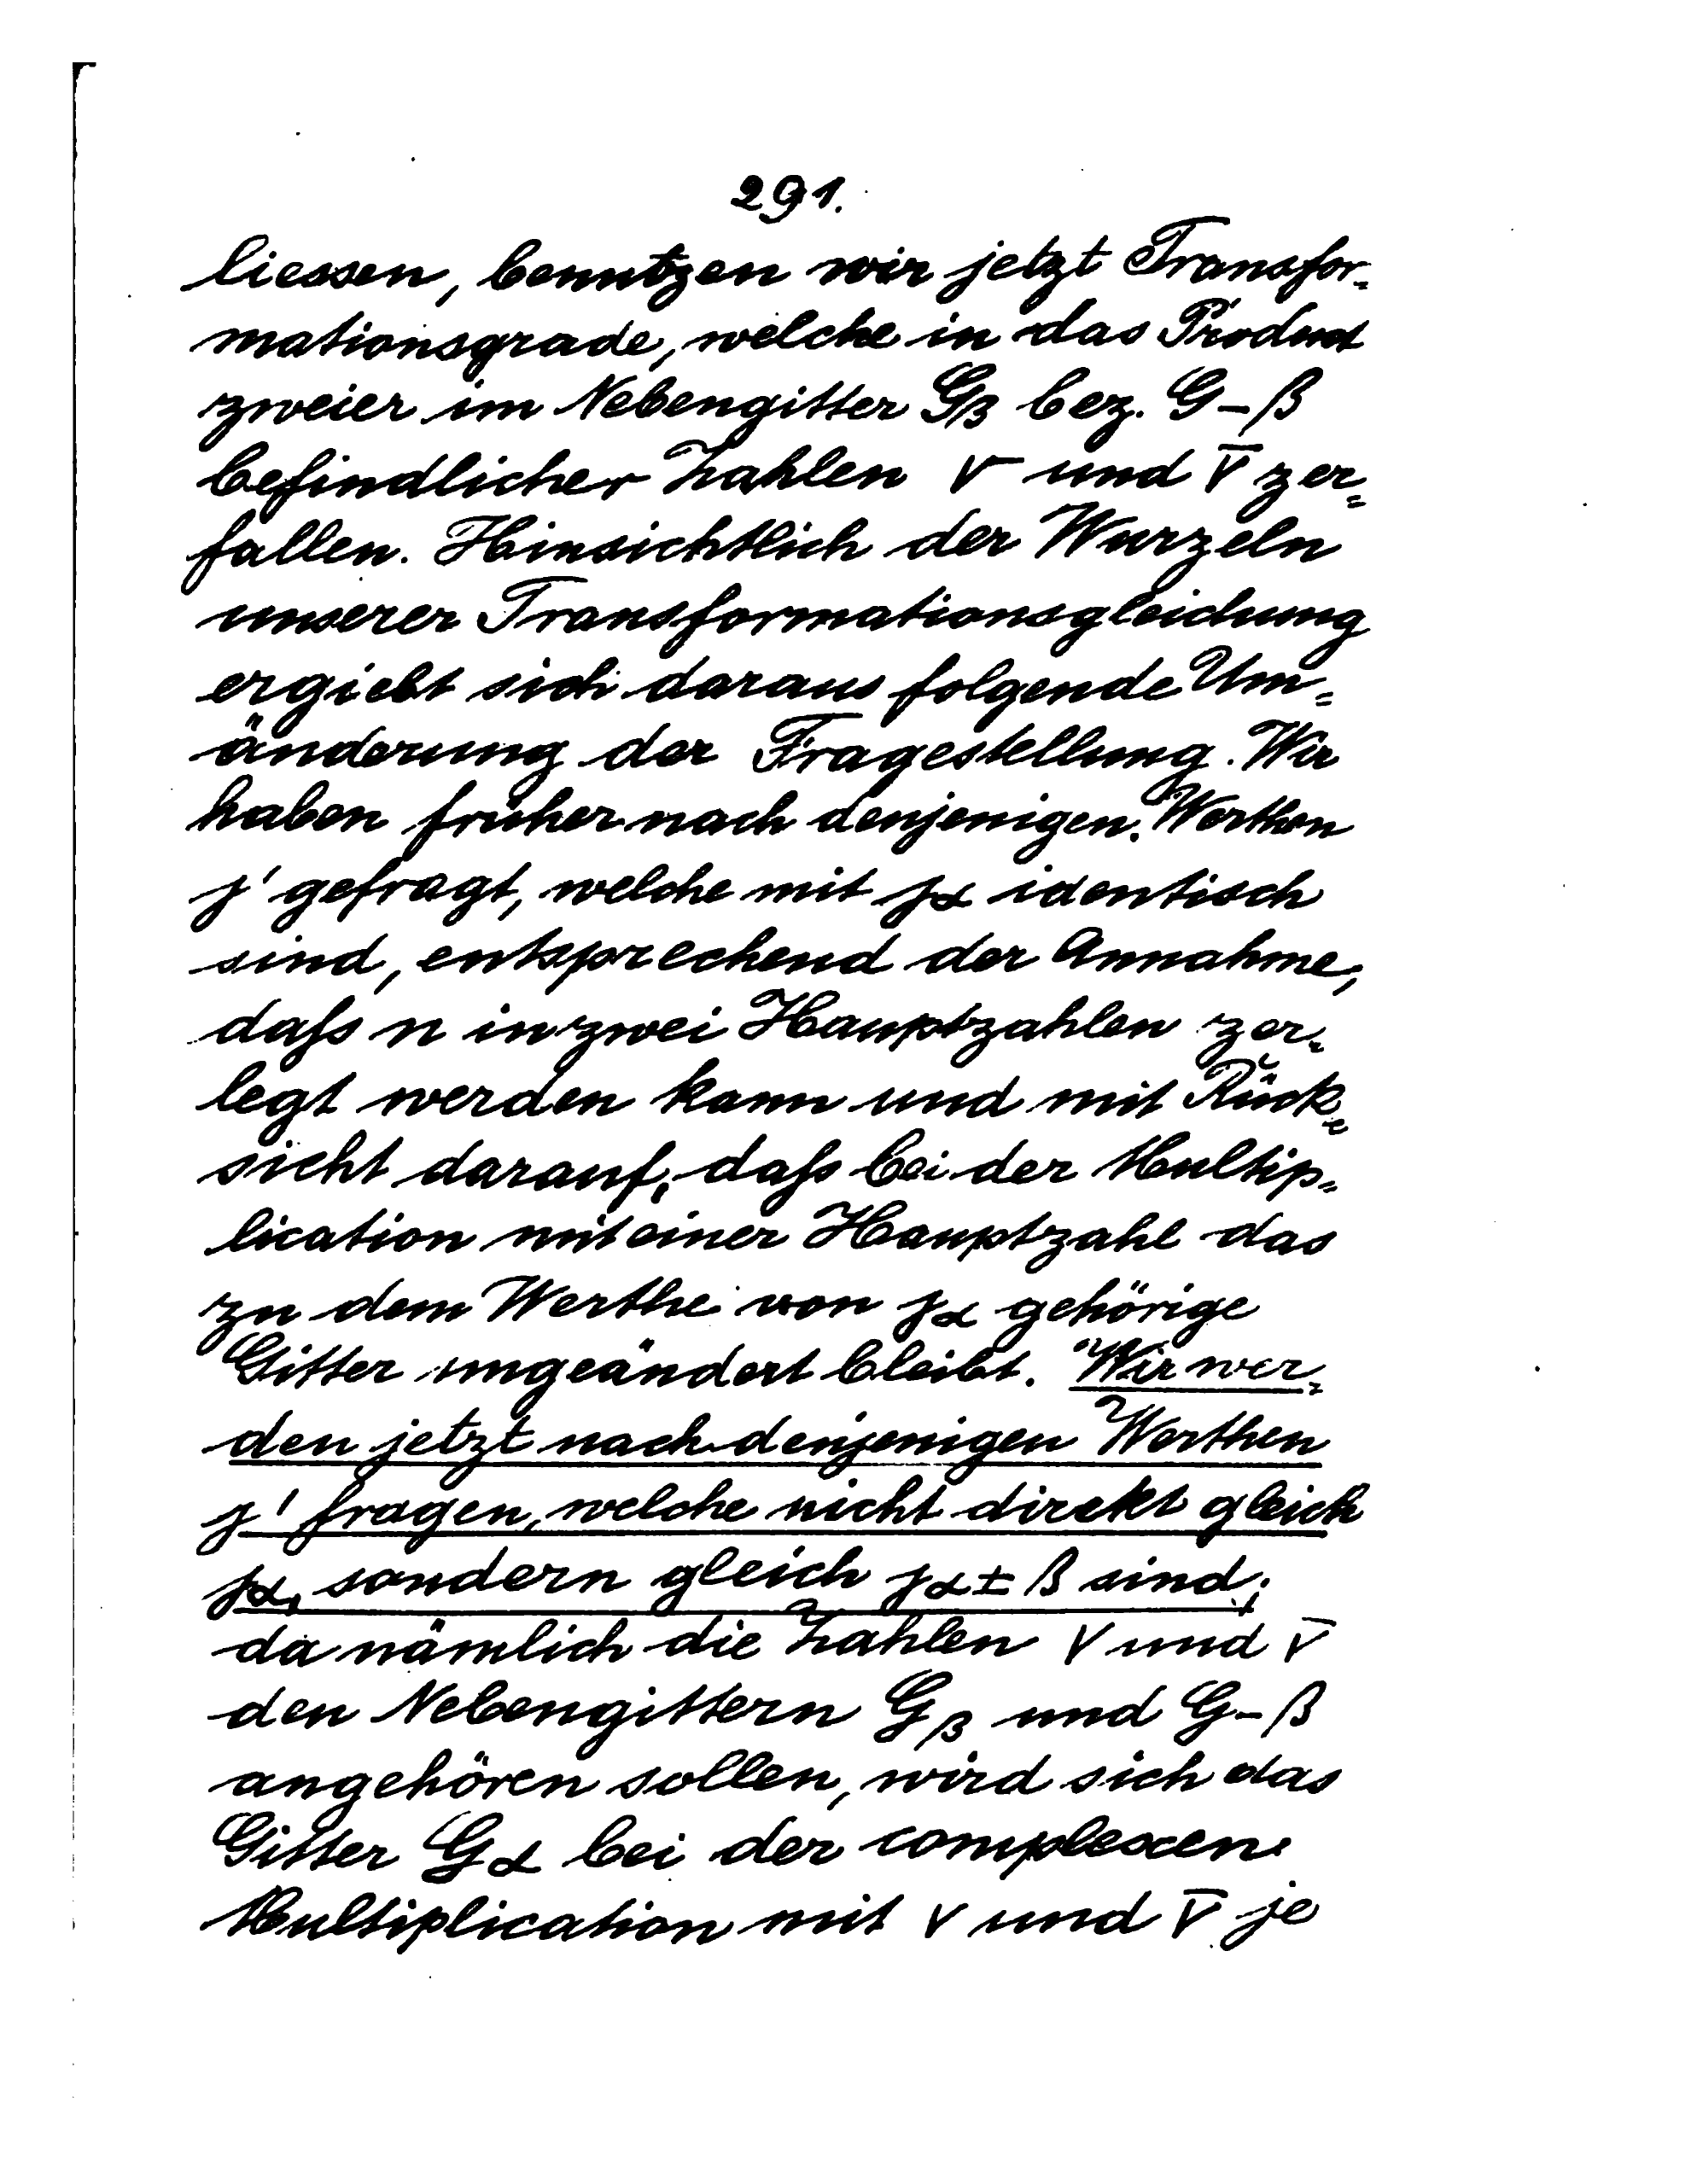 291.
liessen, benutzen wir jetzt Transfor=
mationsgrade, welche in das Product
zweier im Nebengitter Gβ bez. G-β
befindlicher Zahlen ν und ν̅ zer=
fallen. Hinsichtlich der Wurzeln
unserer Transformationsgleichung
ergiebt sich daraus folgende Um=
änderung der Fragestellung. Wir
haben früher nach denjenigen Werthen
j' gefragt, welche mit jα identisch
sind, entsprechend der Annahme,
dafs n in zwei Hauptzahlen zer=
legt werden kann und mit Rück=
sicht darauf, dafs bei der Multip=
lication mit einer Hauptzahl das
zu dem Werthe von jα gehörige
Gitter ungeändert bleibt. Wir wer=
den jetzt nach denjenigen Werthen
j' fragen, welche nicht direkt gleich
jα, sondern gleich jα±β sind;
da nämlich die Zahlen ν und ν̅
den Nebengittern Gβ und G-β
angehören sollen, wird sich das
Gitter Gα bei der complexen
Multiplication mit ν und ν̅ je